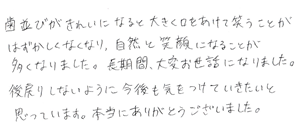 歯並びがきれいになると大きく口をあけて笑うことが
はずかしくなくなり、自然と笑顔になることが
多くなりました。長期間、大変お世話になりました。
後戻りしないように今後も気をつけていきたいと
思っています。本当にありがとうございました。